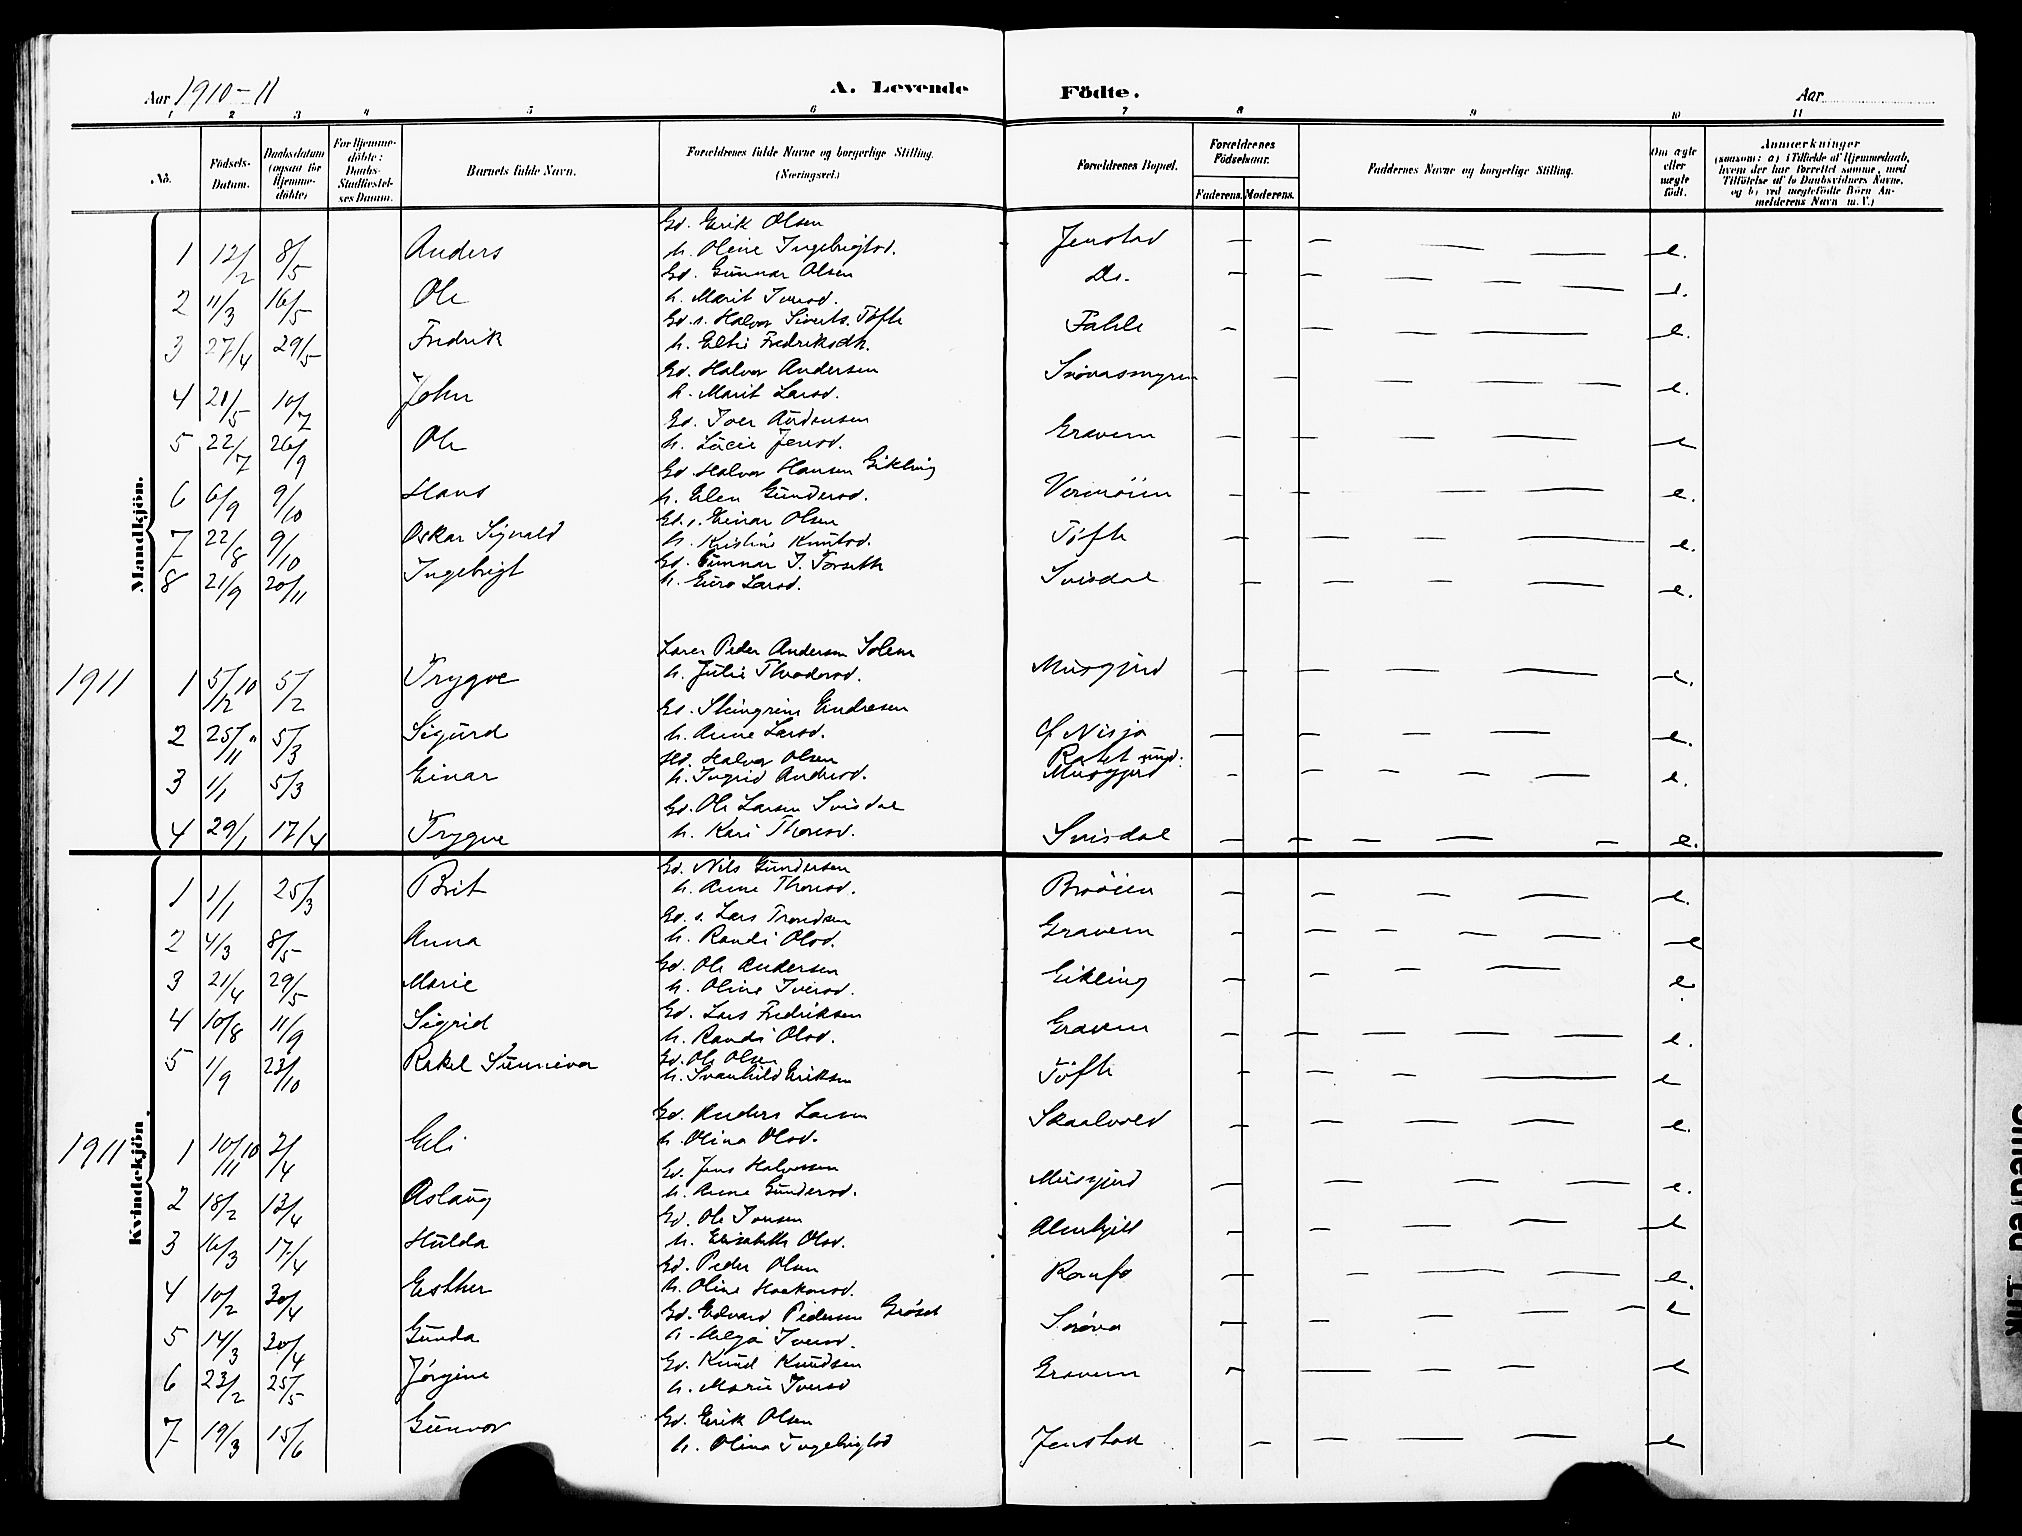 Aar 1910-11 A. Levende Födte. Aar
1 2 3 4 5 6 7 8 9 10 11
No. Födsels-Datum. Daabsdatum (ogsaa for Hjemmedöbte) For Hjemmedöbte: Daabs-Stadfæstelses Datum. Barnets fulde Navn. Forældrenes fulde Navne og borgerlige Stilling. (Næringsvei.) Forældrenes Bopæl. Forældrenes Födselsaar. Faderens. Moderens. Faddernes Navne og borgerlige Stilling. Om ægte eller uægte födt. Anmærkninger (saasom: a) i Tilfælde af Hjemmedaab, hvem der har forrettet samme, med Tilföielse af to Daabsvidners Navne, og b) ved uægtefödte Börn Anmelderens Navn m. V.)
Mandkjön.
Gd. Erik Olsen
1 12/2 8/5 Anders h. Oline Ingebrigtsd. Jenstad — — — — e.
Gd. Gunnar Olsen
2 11/3 16/5 Ole h. Marit Iversd. Do. — — — — — e.
Gd.s. Halvor Siverts. Tøfte
3 27/4 29/5 Fredrik h. Eli Fredriksdtr. Fahle — — — — — e.
Gd. Halvor Andersen
4 21/5 10/7 John h. Marit Larsd. Snøvasmyren — — — — — e.
Gd. Iver
5 22/7 26/9 Ole h. Jensd. Gravem — — — — — e
Gd. Halvor Hansen Eikling
6 6/9 9/10 Hans h. Elen Gundersd. Vermøien — — — — — e.
Gd.s. Einar Olsen
7 22/8 9/10 Oskar Signald h. Kristine Knutsd. Tøfte — — — — — e.
Gd. Gunnar I. Forseth
8 21/9 20/11 Ingebrigt h. Guro Larsd. Svisdal — — — — e.
Lærer Peder Andersen Solem
1911 1 5/12 10 5/2 Trygve h. Julie Musgjerd — — — — e.
Gd. Steingrim Endresen
2 25/11 " 5/3 Sigurd h. Anne Larsd. Ø Nisja — — — — e.
Halvor Olsen
3 1/1 5/3 Einar h. Ingrid Andersd. Musgjerd — — — — — e.
Gd. Ole Larsen Svisdal
4 29/1 17/4 Trygve h. Kari Thoresd. Svisdal — — — — — e.
Kvindekjön.
Gd. Nils Gundersen
1 1/1 25/3 Brit h. Anne Thoresd. Broøien — — — — e.
Gd. s. Lars Trondsen
2 4/3 8/5 Anna h. Randi Olsd. Gravem — — — — — e
Gd. Ole Andersen
3 21/4 29/5 Marie h. Oline Iversd. Eikling — — — — e
Gd. Lars Fredriksen
4 10/8 11/9 Sigrid h. Randi Olsd. Gravem — — — — — e.
Gd. Ole Olsen
5 1/9 23/10 Rakel Sunniva h. Svanhild Eriksen Tøfte — — — — e
Gd. Anders Larsen
1911 1 10/11 10 2/4 Eli h. Olina Olsd. Skaalvold — — — — — e.
Gd. Jens Halvorsen
2 18/2 13/4 Aslaug h. Anne Gundersd. Musgjerd — — — — — e.
Gd. Ole Iversen
3 16/3 17/4 Hulda h. Elisabeth Olsd. — — — — — e
Gd. Peder Olsen
4 10/2 30/4 Esther h. Oline Haakonsd. Romfo — — — — e.
Gd. Edvard Pedersen Grøset
5 14/3 30/4 Gunda h. Iversd. Snøva — — — — — e
Gd. Knud Knudsen
6 23/2 25/5 Jørgine h. Marie Iversd Gravem — — — — e
Gd. Erik Olsen
7 19/3 15/6 Gunvor h. Olina Ingebrigtsd Jenstad — — — — — e